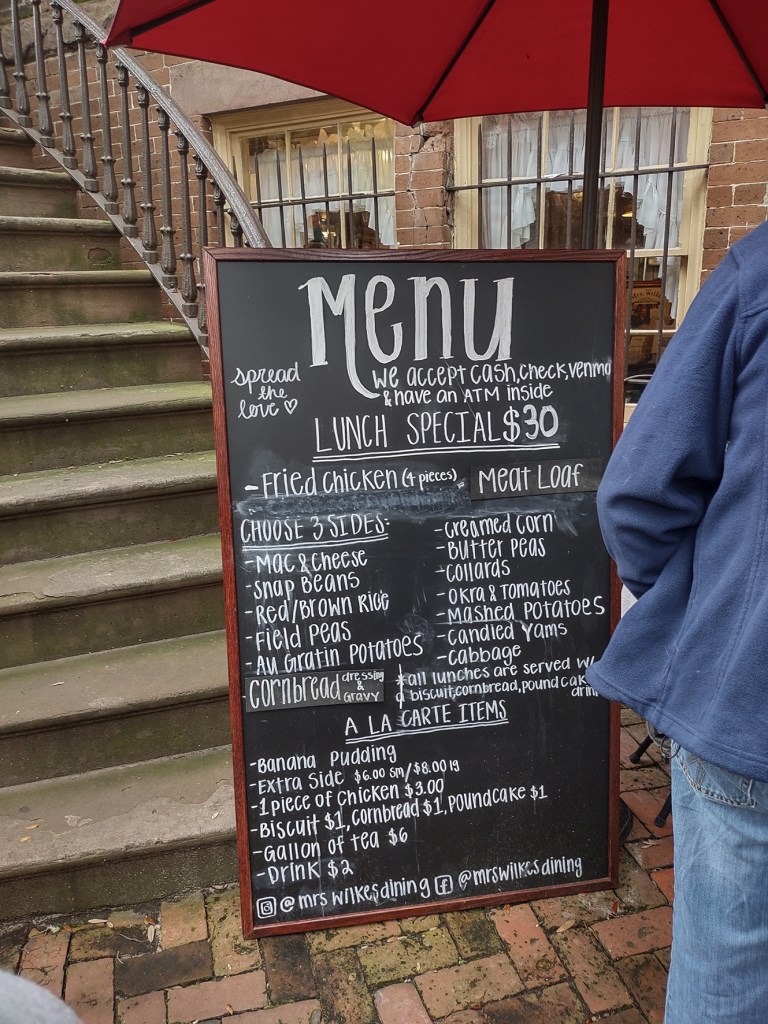 Menu
spread
the
love
we accept cash, check, venmo
& have an ATM inside
LUNCH SPECIAL $30
- Fried Chicken (4 pieces)
Meat Loaf
CHOOSE 3 SIDES:
- Mac & Cheese
- Snap Beans
- Red/Brown Rice
- Field Peas
- Au Gratin Potatoes
cornbread dressing & gravy
- Creamed Corn
- Butter Peas
- Collards
- Okra & Tomatoes
- Mashed Potatoes
- Candied Yams
- Cabbage
* all lunches are served w/
a biscuit, cornbread, pound cake
drink
A LA CARTE ITEMS
- Banana Pudding
- Extra Side $6.00 sm/$8.00 lg
- 1 piece of Chicken $3.00
- Biscuit $1, cornbread $1, poundcake $1
- Gallon of tea $6
- Drink $2
@mrswilkesdining @mrswilkesdining